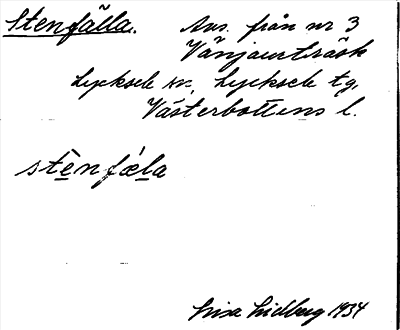 Stenfälla. Avs. från nr 3
Vänjaurträsk
Lycksele sn, Lycksele tg,
Västerbottens l.
stènfǽla
Lisa Lidberg 1934